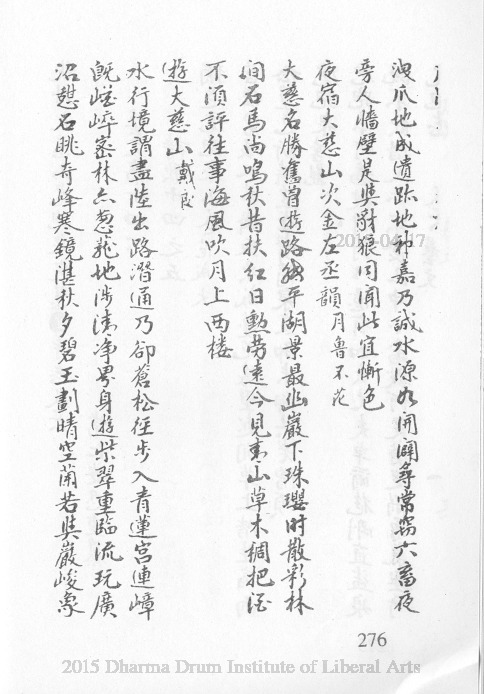 洩爪地成遺跡地神嘉乃誠水源如開闢尋常窮六畜夜
旁人墻壁是與豺狼同聞此宜慚色
夜宿大慈山次金左丞韻月魯不花
大慈名勝舊曾遊路繞平湖景最幽巖下珠瓔時散彩林
間石馬尚鳴秋昔扶紅日勳勞遠今見青山草木稠把酒
不須評往事海風吹月上西楼
遊大慈山戴良
水行境謂盡陸出路潛通乃卻蒼松徑步入青蓮宮連嶂
既嵯崒密林亦葱蘢地涉清净界身遊紫翠重臨流玩廣
沼憩石眺奇峰寒鏡湛秋夕碧玉劃晴空蘭若與嚴峻象
276
2015-04-17
2015 Dharma Drum Institute of Liberal Arts